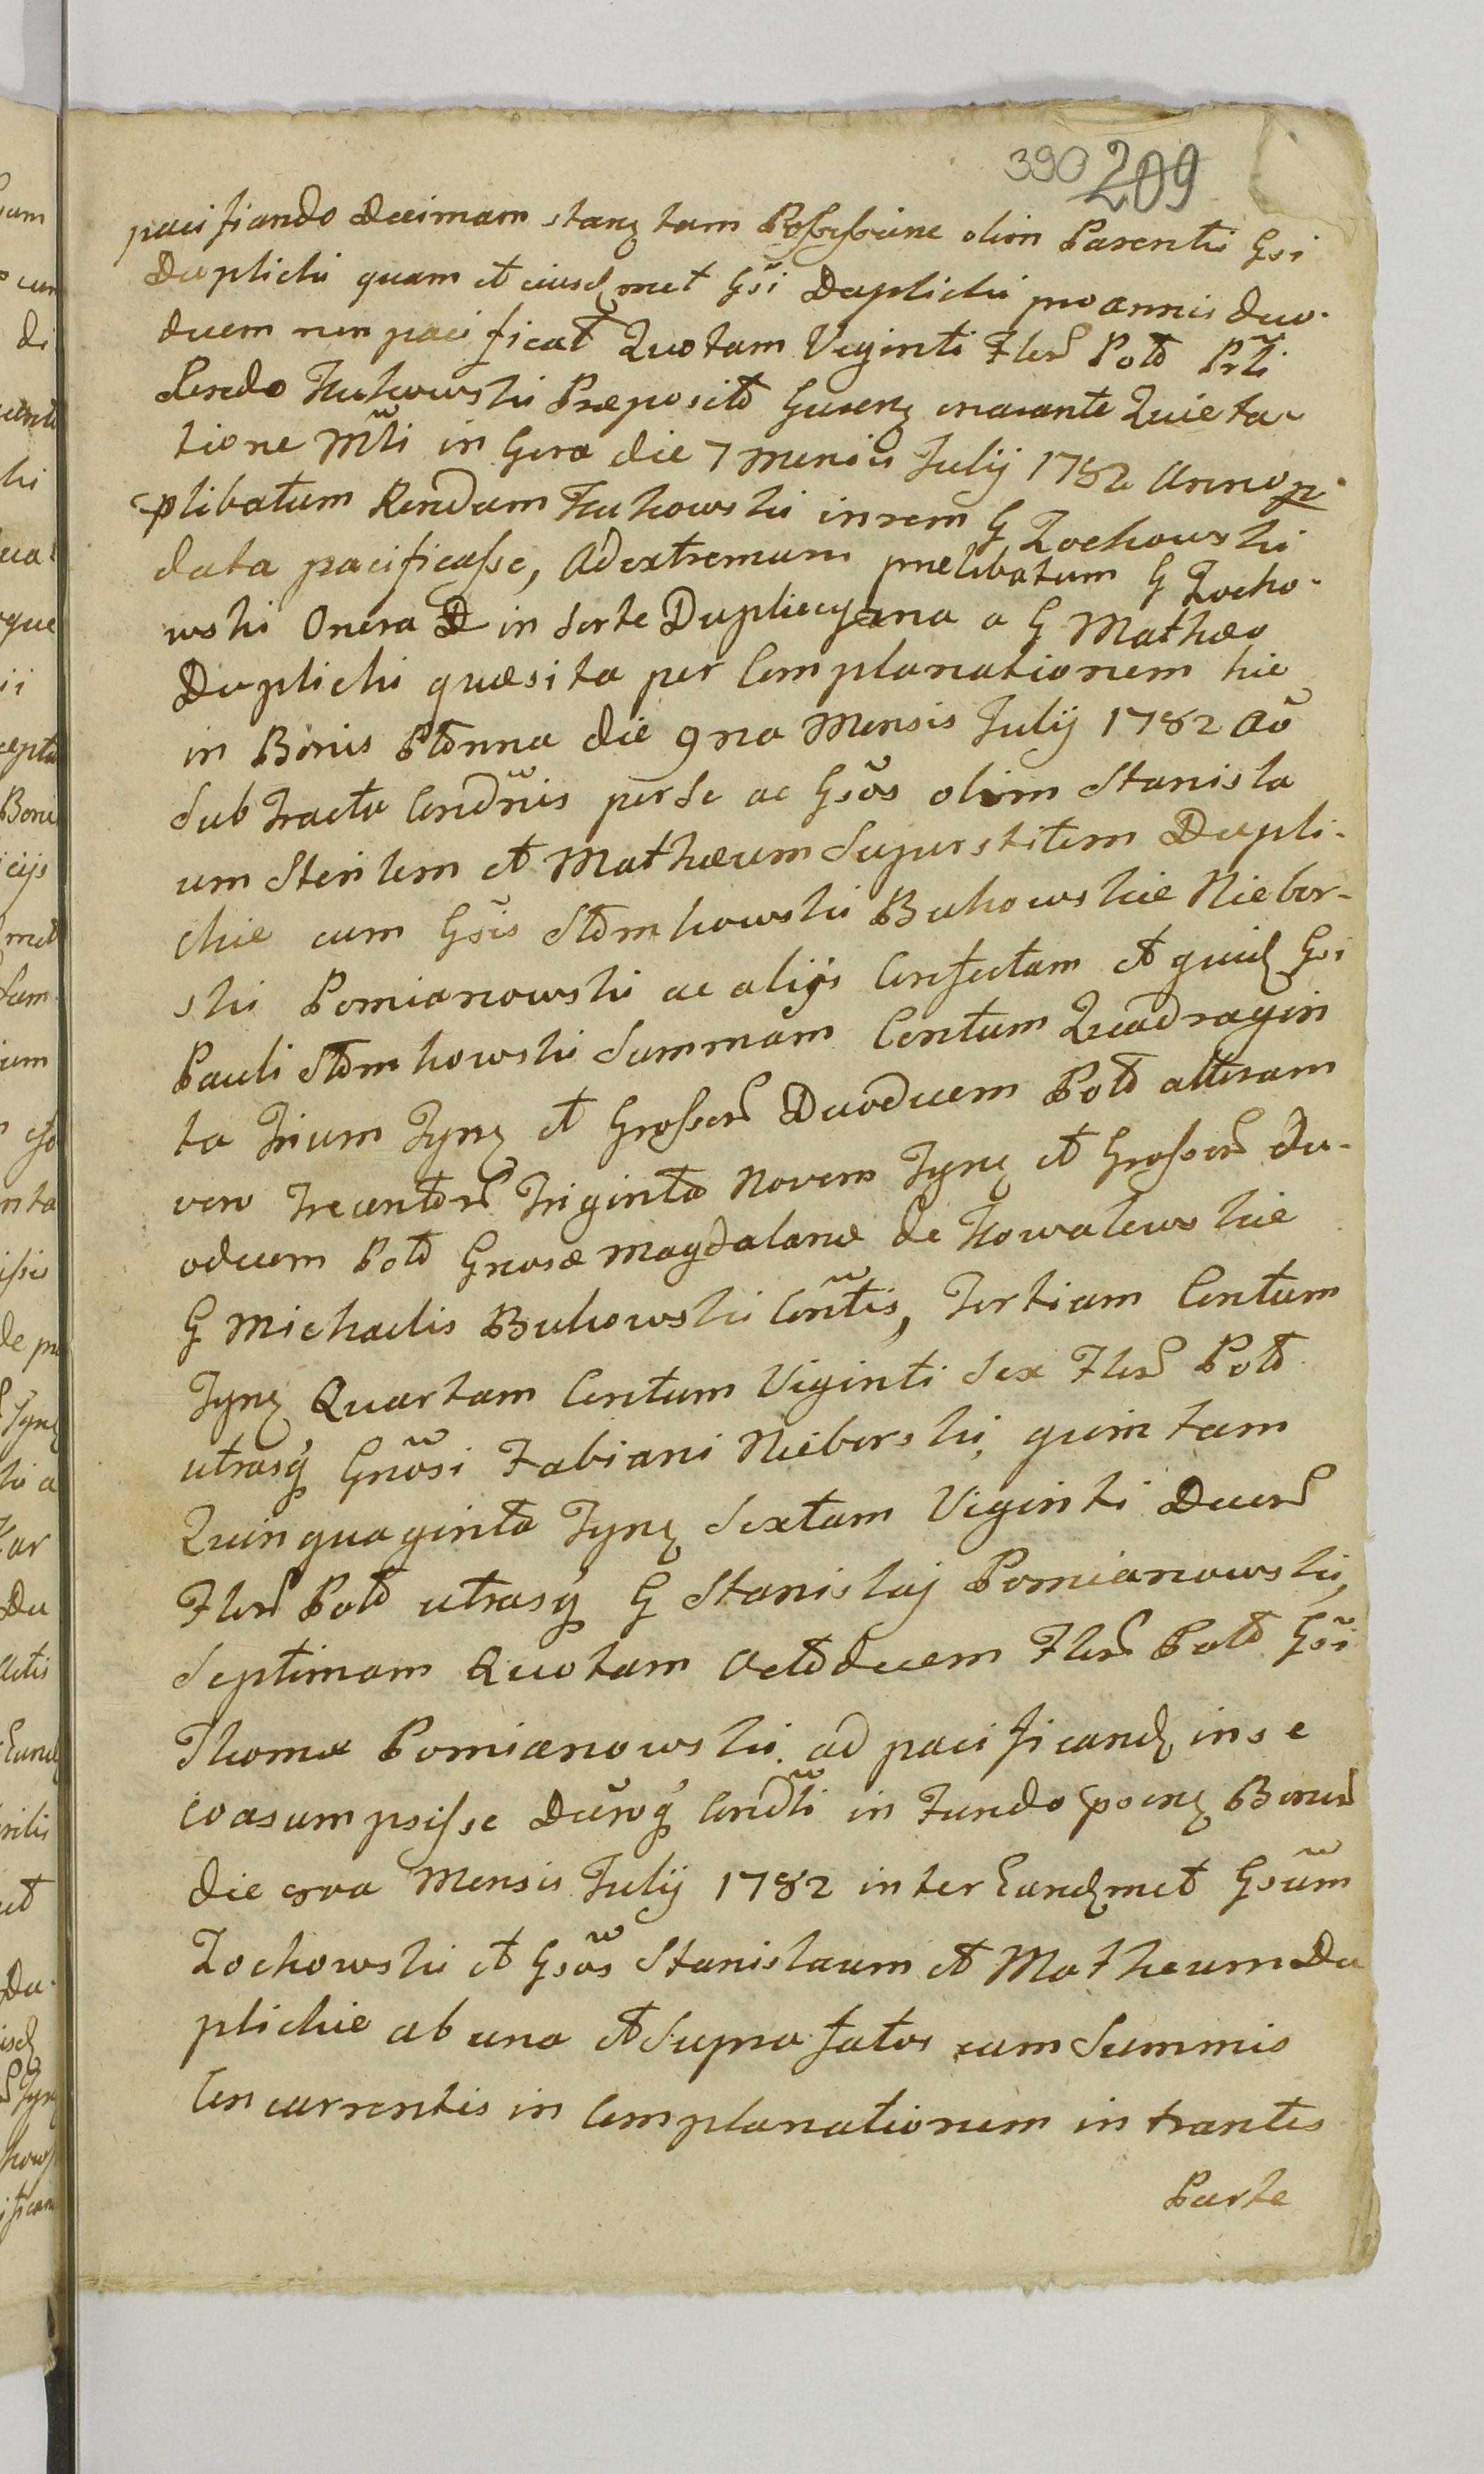 390 209
pacifiando Decimam stanz tam Possessione olim Parentis Gsi
Duplicki quam et eiusdmet Gsi Duplicki pro annis duo-
decem non pacificat Quotam Viginti Flor Pol Prti
Rendo Kukowski Præposito Gusenz enarante Quieta-
tione Mti in Gora die 7 Mensis Julij 1782 Anno p
plibatum Rendum Kukowski in rem G Zochowski
data pacificasse, Ad extremum prælibatum G Zocho-
wski Onera D in Sorte Duplicczana a G Mathæo
Duplicki quæsita per Complanationem hic
in Bonis Płonna die 9na Mensis Julij 1782 Aõ
Sub Tractu Condnis per Se ac Gsõs olim Stanisla
um Sterilem et Mathæum Superstitem Dupli-
ckie cum Gsis Słomkowski Bukowskie Niebor-
ski Pomianowski ac alijs Confectam et quid Gsi
Pauli Słomkowski Summam Centum Quadragin
ta Trium Tynz et Grossor Duodecem Pol alteram
vero Trecentor Triginta Novem Tynz et Grossor du-
odecem Pol Gnosæ Magdalanæ de Kowalewskie
G Michaelis Bukowski Contis, Tertiam Centum
Tynz Quartam Centum Viginti Sex Flor Pol
utrasq Gnosi Fabiani Nieborski, quintam
Quinquaginta Tynz Sextam Viginti Duor
Flor Pol utrasq G Stanislaj Pomianowski,
Septimam Quotam Octodecem Flor Pol Gsi
Thomæ Pomianowski ad pacificand in se
coasumpsisse Duroq Condti in Fundo psenz Bonor
die 9na Mensis Julij 1782 inter Eundmet Gsum
Zochowski et Gsõs Stanislaum et Matheum Du
plickie ab una et Supra fatos cum Summis
Concurrentis in Complanationem intrantes
Parte